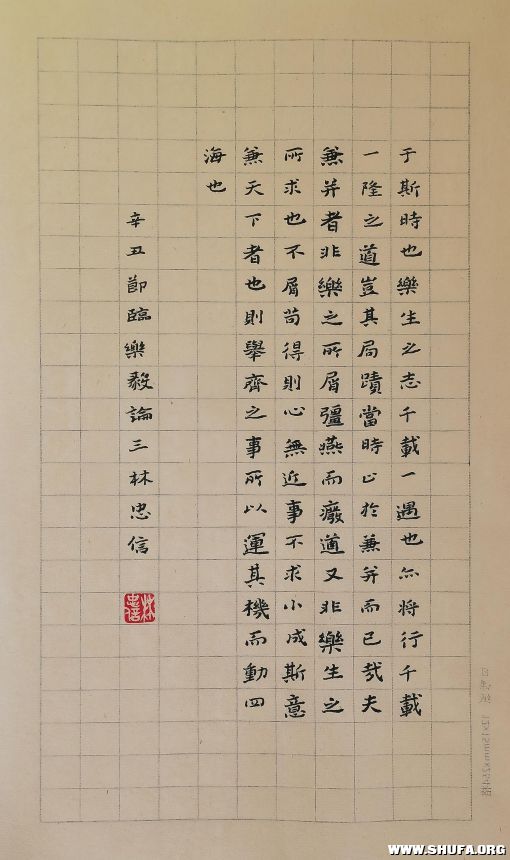 于斯時也樂生之志千載一遇也亦將行千載
一隆之道豈其局蹟當時止於兼并而已哉夫
兼并者非樂之所屑彊燕而廢道又非樂生之
所求也不屑苟得則心無近事不求小成斯意
兼天下者也則舉齊之事所以運其機而動四
海也
辛丑節臨樂毅論三林忠信
林忠信
WWW.SHUFA.ORG